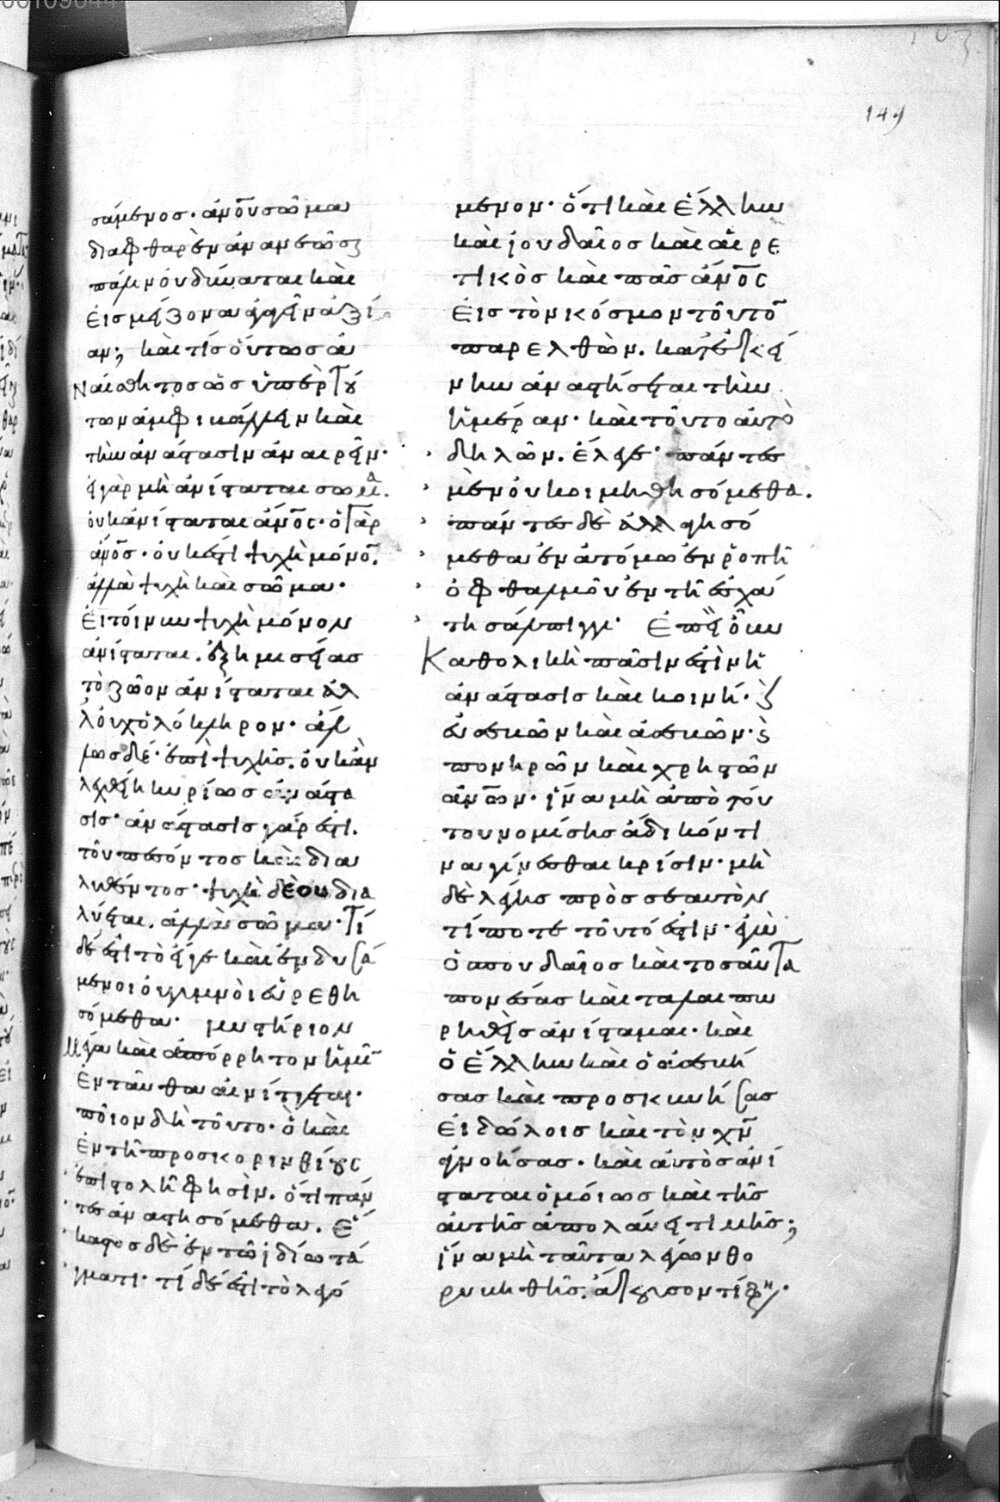 149
σάμενος· ἀνο̅υ σῶμα
διαφθαρὲν ἀνανεῶσ
πάλιν οὐ δύναται καὶ
εἰς μείζονα ἀγαγεῖν ἀξί
αν; καὶ τίς οὕτως ἀ
ναίσθητος ὡς ὑπὲρ τού
των ἀμφιβάλλειν καὶ
τὴν ἀνάστασιν ἀναιρεῖν·
εἰ γὰρ μὴ ἀνίσταται σῶμα.
οὐκ ἀνίσταται ἀνο̅ς· ὁ γὰρ
ἀνο̅ς· οὐκ ἐστὶ ψυχὴ μόνον.
ἀλλὰ ψυχὴ καὶ σῶμα·
εἰ τοίνυν ψυχὴ μόνον
ἀνίσταται. ἐξ ἡμισείας
τὸ ζῶον ἀνίσταται ἀλ
λ' οὐχ' ὁλόκληρον· ἄλ
λως δέ· ἐπὶ ψυχῆς. οὐκ ἂν
λεχθείη κυρίως ἀνάστα
σις· ἀνάστασις γάρ ἐστι.
τοῦ πεσόντος καὶ δια
λυθέντος· ψυχὴ δὲ οὐ δια
λύεται. ἀλλὰ σῶμα· τί
δέ ἐστι τὸ εἴγε καὶ ἐνδυσά
μενοι οὐ γυμνοὶ εὑρεθη
σόμεθα· μυστήριον
μέγα καὶ ἀπόρρητον ἡμῖν
ἐνταῦθα αἰνίττεται·
ποῖον δὴ τοῦτο· ὃ καὶ
ἐν τῇ πρὸς κορινθίους
ἐπιστολῇ φησίν. ὅτι πάν
τες ἀναστησόμεθα. ἕ
καστος δὲ ἐν τῷ ἰδίῳ τά
γματι· τί δέ ἐστι τὸ λεγό
μενον· ὅτι καὶ ἕλλην
καὶ ἰουδαῖος καὶ αἱρε
τικὸς καὶ πᾶς ἀνο̅ς
εἰς τὸν κόσμον τοῦτον
παρελθὼν. κατ' ἐκεί
νην ἀναστήσεται τὴν
ἡμέραν· καὶ τοῦτο αὐτὸ
δηλῶν. ἔλεγε· πάντες
μὲν οὐ κοιμηθησόμεθα.
πάντες δὲ ἀλλαγησό
μεθα ἐν ἀτόμῳ ἐν ῥοπῇ
ὀφθαλμοῦ ἐν τῇ ἐσχά
τῃ σάλπιγγι· ἐπεὶ οὖν
καθολικὴ πᾶσίν ἐστιν ἡ
ἀνάστασις καὶ κοινή· καὶ
εὐσεβῶν καὶ ἀσεβῶν· καὶ
πονηρῶν καὶ χρηστῶν
ἀνῶν· ἵνα μὴ ἀπὸ τού
του νομίσῃς ἄδικόν τι
να γίνεσθαι κρίσιν· μὴ
δὲ λέγῃς πρὸς σεαυτὸν
τί ποτε τοῦτό ἐστιν· ἐγὼ
ὁ σπουδαῖος καὶ τοσαῦτα
πονέσας καὶ ταλαιπω
ρηθεὶς ἀνίσταμαι· καὶ
ὁ ἕλλην καὶ ὁ ἀσεβή
σας καὶ προσκυνήσας
εἰδώλοις καὶ τὸν χν̅
ἀγνοήσας· καὶ αὐτὸς ἀνί
σταται ὁμοίως καὶ τῆς
αὐτῆς ἀπολαύει τιμῆς;
ἵνα μὴ ταῦτα λέγων θο
ρυβηθῇς. ἄκουσον τί φη·